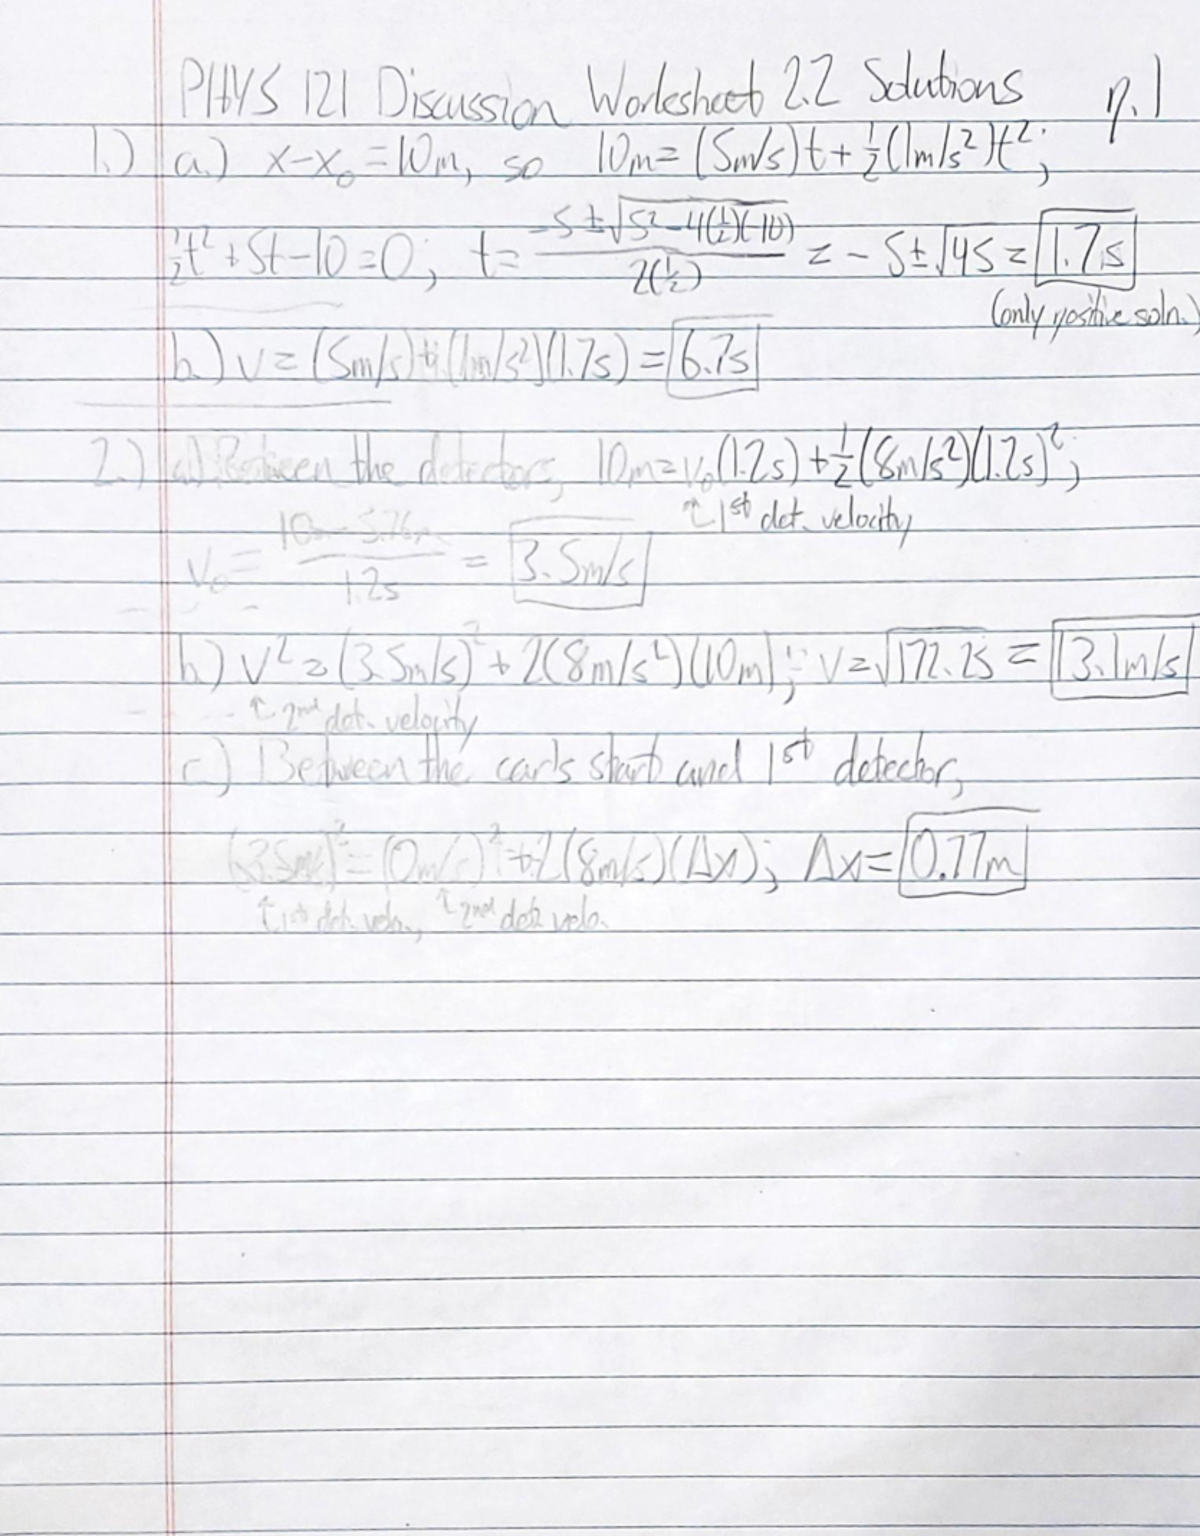 PHYS 121 Discussion Worksheet 2.2 Solutions p. 1
1.) a.) x-x₀ = 10m, so 10m = (5m/s)t + ½(1m/s²)t²;
½t² + 5t - 10 = 0; t = (-5 ± √(5² - 4(½)(-10))) / 2(½) = -5 ± √45 = 1.7s
(only positive soln.)
b.) v = (5m/s) + (1m/s²)(1.7s) = 6.7s
2.) a.) Between the detectors, 10m = v₀(1.2s) + ½(8m/s²)(1.2s)²;
↑ 1st det. velocity
v₀ = (10m - 5.76m) / 1.2s = 3.5m/s
b.) v² = (3.5m/s)² + 2(8m/s²)(10m); v = √172.25 = 13.1m/s
↑ 2nd det. velocity
c.) Between the car's start and 1st detector,
(3.5m/s)² = (0m/s)² + 2(8m/s)(Δx); Δx = 0.77m
↑ 1st det. velo., ↑ 2nd det. velo.